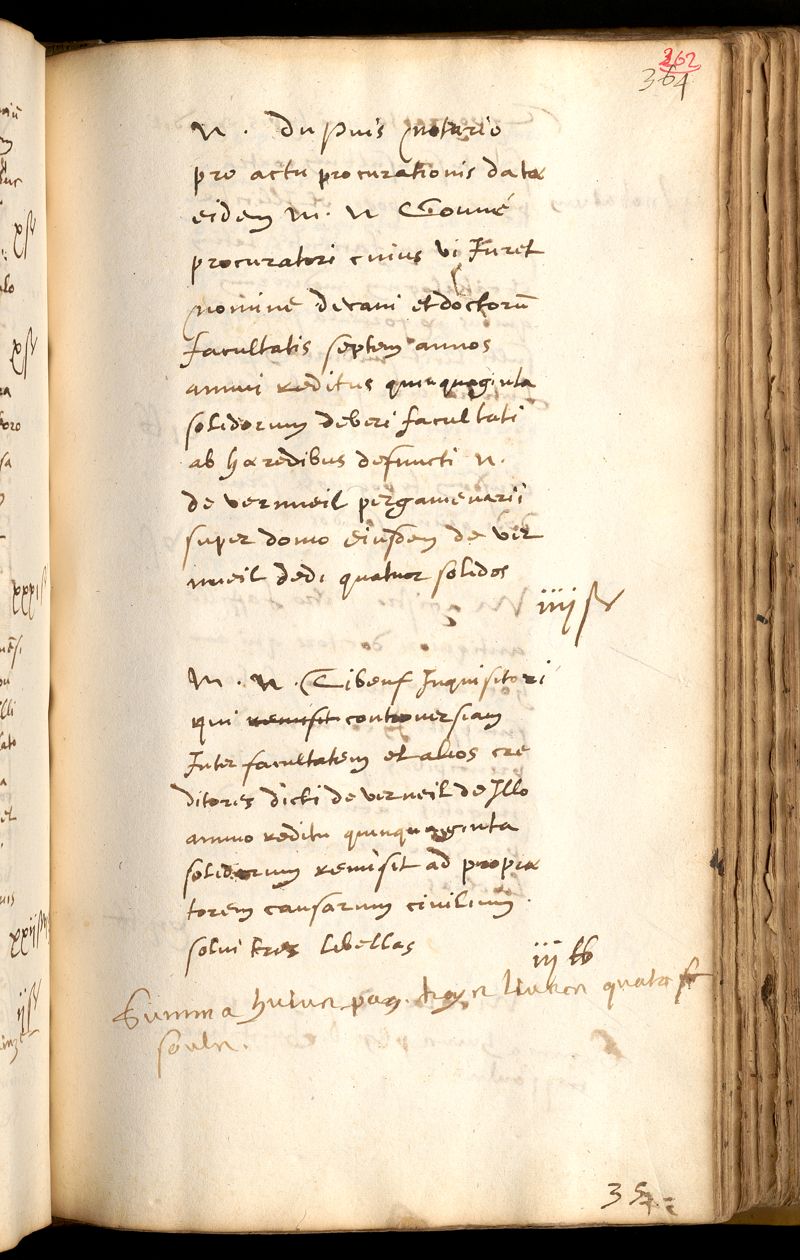 262
364
N. Dupuis notario
pro actu procurationis datæ
eidem M. N Gonné
procuratori cuius vi Iuret
nomine decani et doctorū
facultatis septem annos
annui reditus quinquaginta
solidorum deberi facultati
ab hæredibus defuncti N.
de vernueil pergamenarii
super domo eiusdem de ver
nueil dedi quatuor solidos
iiij s
M. N. Inquisitori
qui remisit controversiam
Inter facultatem et alios cre
ditores dicti de verneil de Illo
annuo reditu quinquaginta
solidorum remisit ad propræ
torem causarum civilium
solui tres libellas
iij lb
Summa huius pag. livres
soulz.